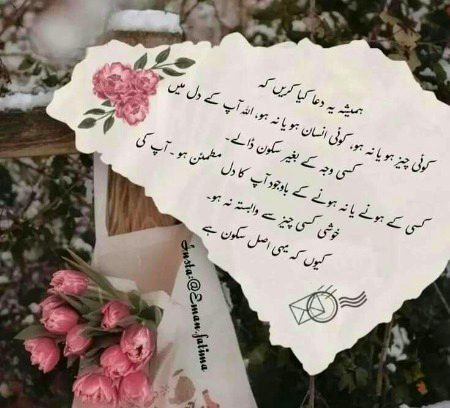 ہمیشہ یہ دعا کیا کریں کہ
کوئی چیز ہو یا نہ ہو، کوئی انسان ہو یا نہ ہو، اللہ آپ کے دل میں
کسی وجہ کے بغیر سکون ڈالے۔
کسی کے ہونے یا نہ ہونے کے باوجود آپ کا دل مطمئن ہو۔ آپ کی
خوشی کسی چیز سے وابستہ نہ ہو۔
کیوں کہ یہی اصل سکون ہے
Insta:@Eman.fatima